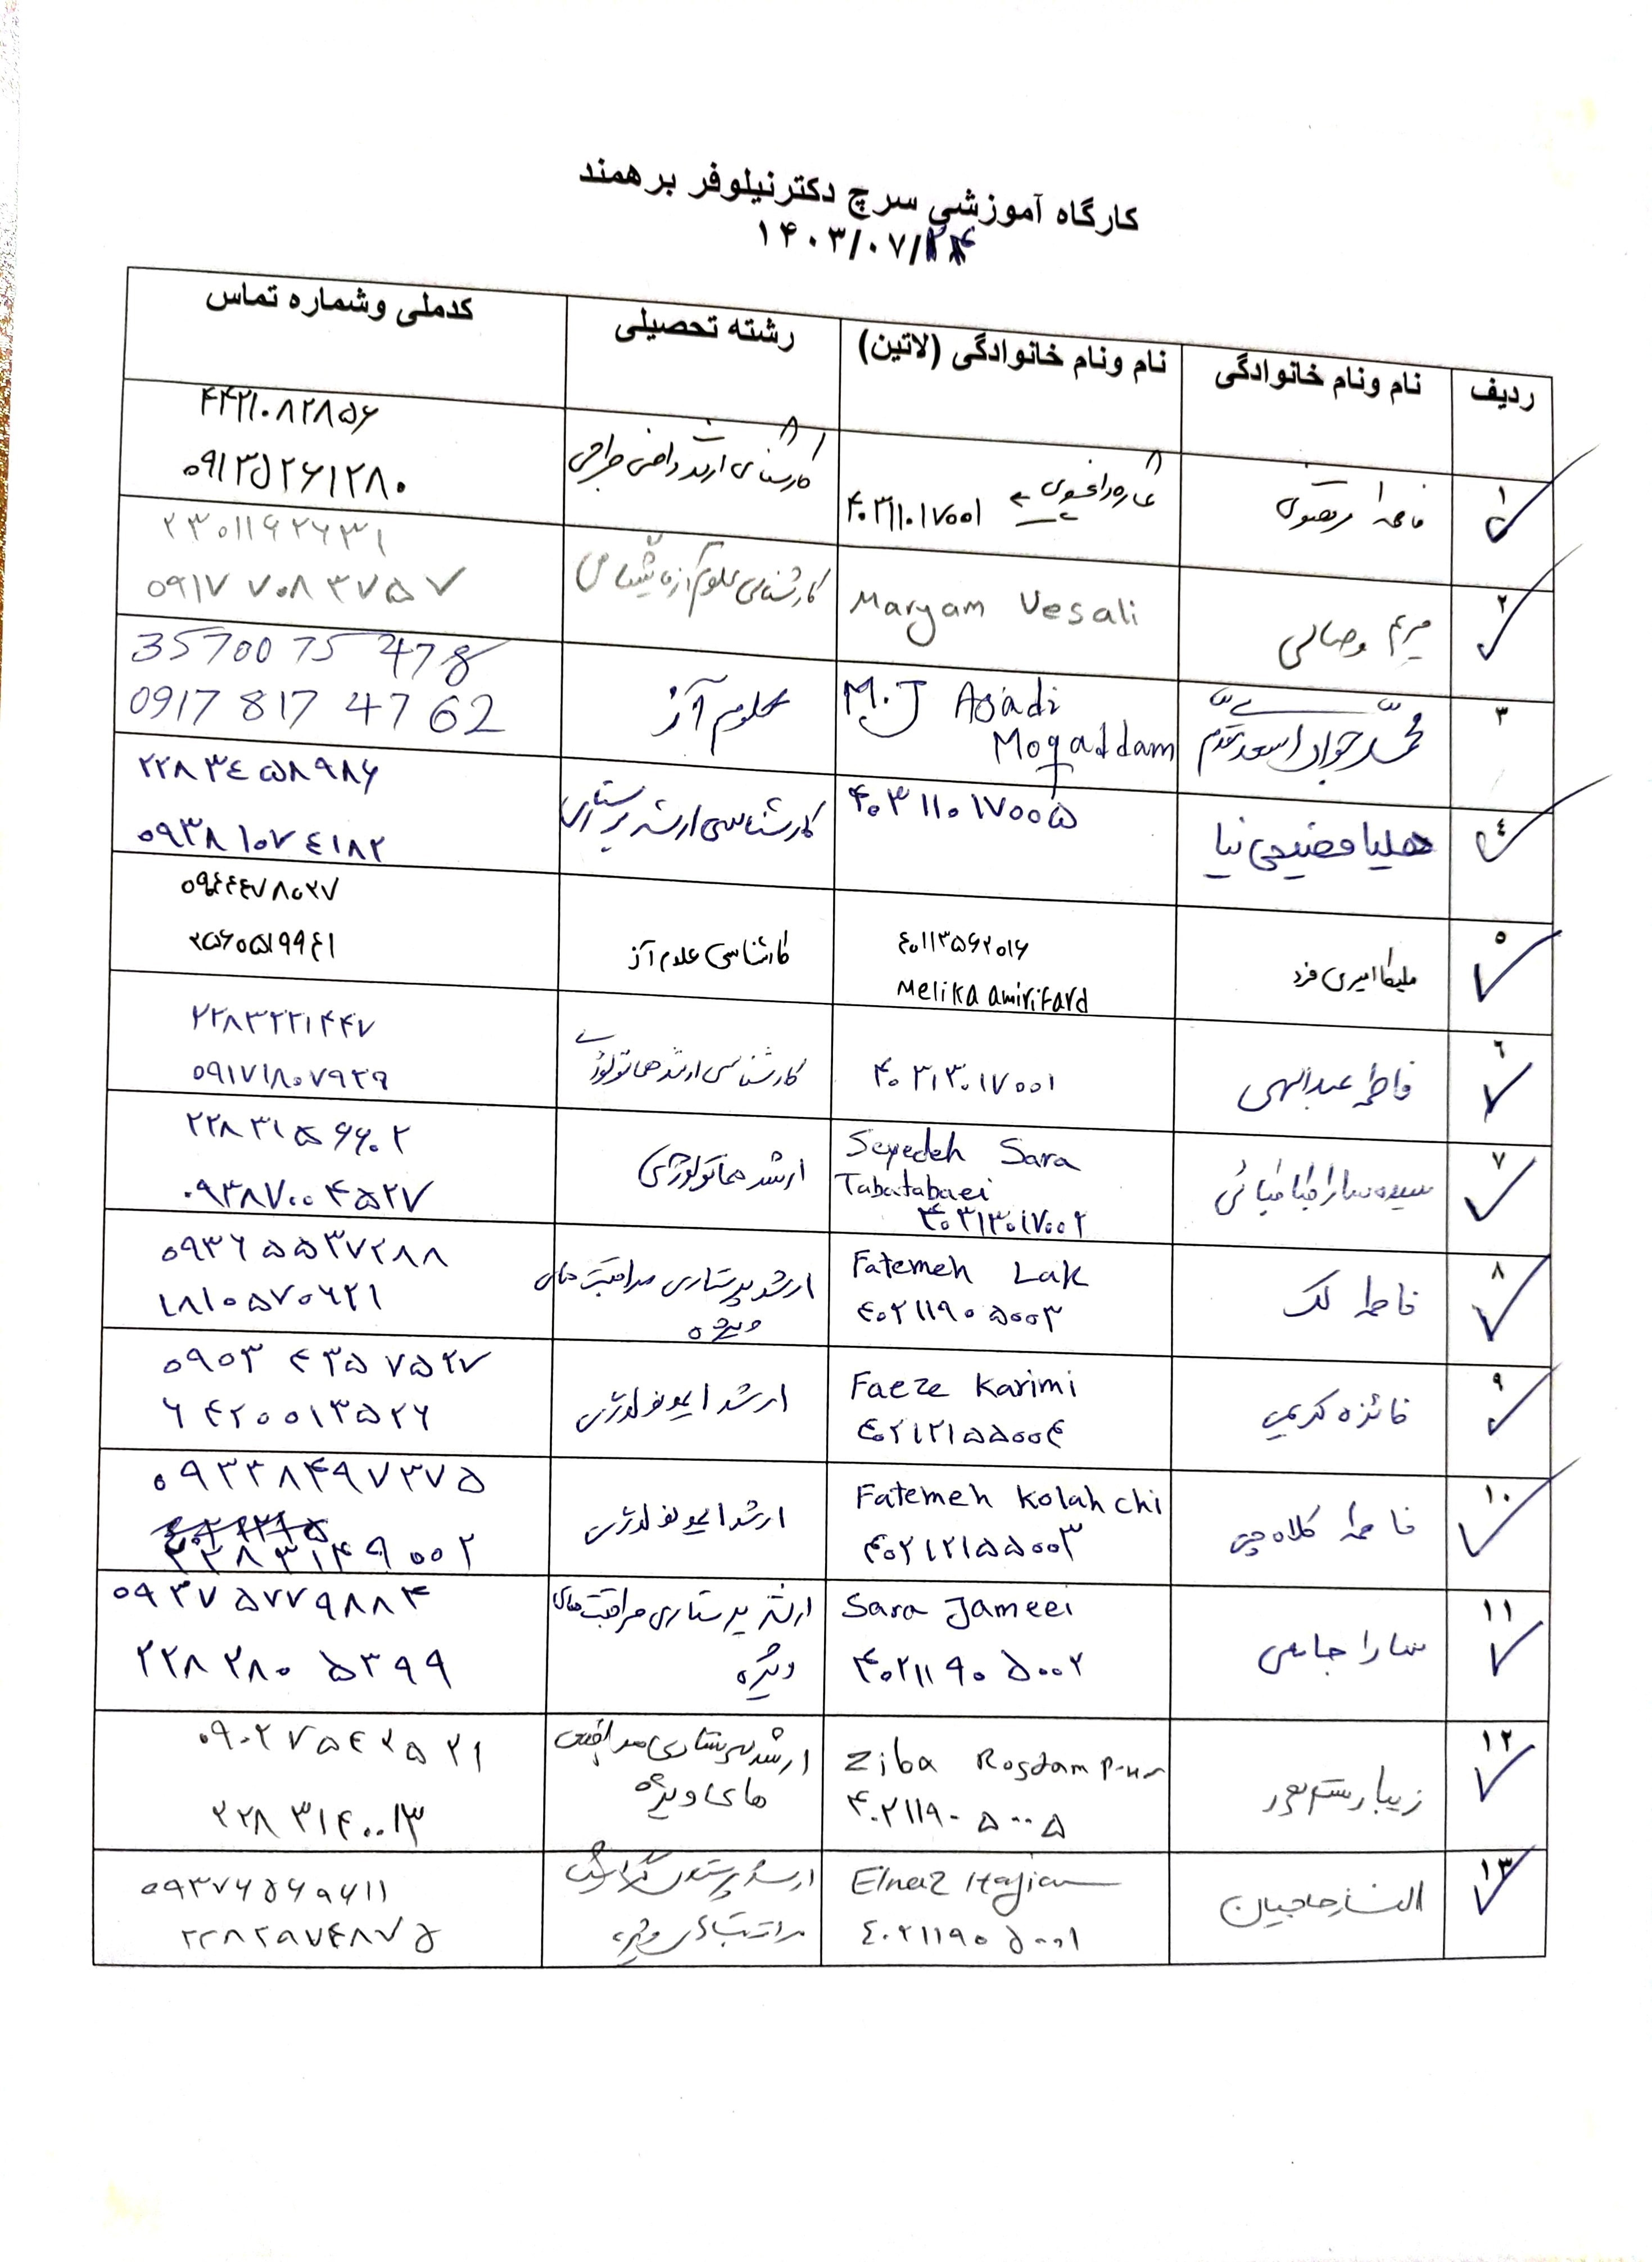 کارگاه آموزشی سرچ دکترنیلوفر برهمند
۱۴۰۳/۰۷/۲۴
ردیف نام ونام خانوادگی نام ونام خانوادگی (لاتین) رشته تحصیلی کدملی وشماره تماس
۱ کارشناسی ارشد داخلی جراحی
۴۰۳۱۱۰۱۷۰۰۱
۰۹۱۳۵۲۶۱۲۸۰
۲ مریم وصالی Maryam Vesali کارشناسی علوم آزمایشگاهی ۲۳۰۱۱۹۲۶۳۱
۰۹۱۷۷۰۸۳۷۵۷
۳ محمد جواد اسعدی مقدم M.J Asadi علوم آز 3570075478
Mogaddam 0917 817 47 62
۴ هلیا فصیحی نیا ۴۰۳۱۱۰۱۷۰۰۵ کارشناسی ارشد پرستاری ۲۲۸۳۴۵۸۹۸۶
۰۹۳۸۱۰۷۴۱۸۲
۵ ملیکا امیری فرد ۴۰۱۱۳۵۶۲۰۱۶ کارشناسی علوم آز
Melika amirifard ۲۵۶۰۵۱۹۹۴۱
۶ فاطمه عبدالهی ۴۰۳۱۳۰۱۷۰۰۱ کارشناسی ارشد هماتولوژی ۲۲۸۳۲۲۱۴۴۷
۰۹۱۷۱۸۰۷۹۲۹
۷ سیده سارا طباطبائی Seyedeh Sara ارشد هماتولوژی ۲۲۸۳۱۵۶۶۰۲
Tabatabaei ۰۹۳۸۷۰۰۴۵۲۷
۴۰۳۱۳۰۱۷۰۰۲
۸ فاطمه لک Fatemeh Lak ارشد پرستاری مراقبت های ۰۹۳۶۵۵۳۷۲۸۸
۴۰۲۱۱۹۰۵۰۰۳ ویژه ۱۸۱۰۵۷۰۶۲۱
۹ فائزه کریمی Faeze Karimi ارشد ایمونولوژی ۰۹۰۳۴۳۵۷۵۲۷
۴۰۲۱۲۱۵۵۰۰۴ ۶۴۲۰۰۱۳۵۲۶
۱۰ فاطمه کلاه چی Fatemeh Kolahchi ارشد ایمونولوژی ۰۹۳۳۸۴۹۷۳۷۵
۴۰۲۱۲۱۵۵۰۰۳ ۲۲۸۳۱۴۹۰۰۲
۱۱ سارا جامعی Sara Jameei ارشد پرستاری مراقبت های ۰۹۳۷۵۷۷۹۸۸۴
۴۰۲۱۱۹۰۵۰۰۲ ویژه ۲۲۸۲۸۰۵۳۹۹
۱۲ زیبا رستم پور Ziba Rostampour ارشد پرستاری مراقبت ۰۹۰۲۷۵۴۲۵۲۱
۴۰۲۱۱۹۰۵۰۰۵ های ویژه ۲۲۸۳۱۴۰۰۱۳
۱۳ الناز حاجیان Elnaz Hajian ارشد پرستاری گرایش ۰۹۳۷۶۵۶۹۶۱۱
۴۰۲۱۱۹۰۵۰۰۱ مراقبتهای ویژه ۲۲۸۲۹۷۴۸۷۵